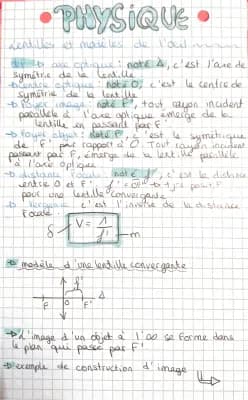 PHYSIQUE
Lentilles et modèles de l'œil
def → axe optique : noté Δ, c'est l'axe de
symétrie de la lentille
→ centre optique : noté O, c'est le centre de
symétrie de la lentille
→ Foyer image : noté F', tout rayon incident
parallèle à l'axe optique émerge de la
lentille en passant par F'
→ Foyer objet : noté F, c'est le symétrique
de F' par rapport à O. Tout rayon incident
passant par F, émerge de la lentille parallèle
à l'axe optique
→ distance focale : noté f', c'est la distance
entre O et F'
pour une lentille convergente
→ Vergence : c'est l'inverse de la distance
focale :
δ V = 1/f' m
→ modèle d'une lentille convergente
f'
F O F' Δ
→ L'image d'un objet à l'∞ se forme dans
le plan qui passe par F'
→ exemple de construction d'image